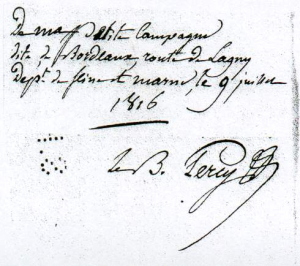 De ma petite Campagne
dite de Bordeaux, route de Lagny
Dept. de Seine et marne, le 9 juillet
1816
le B. Percy